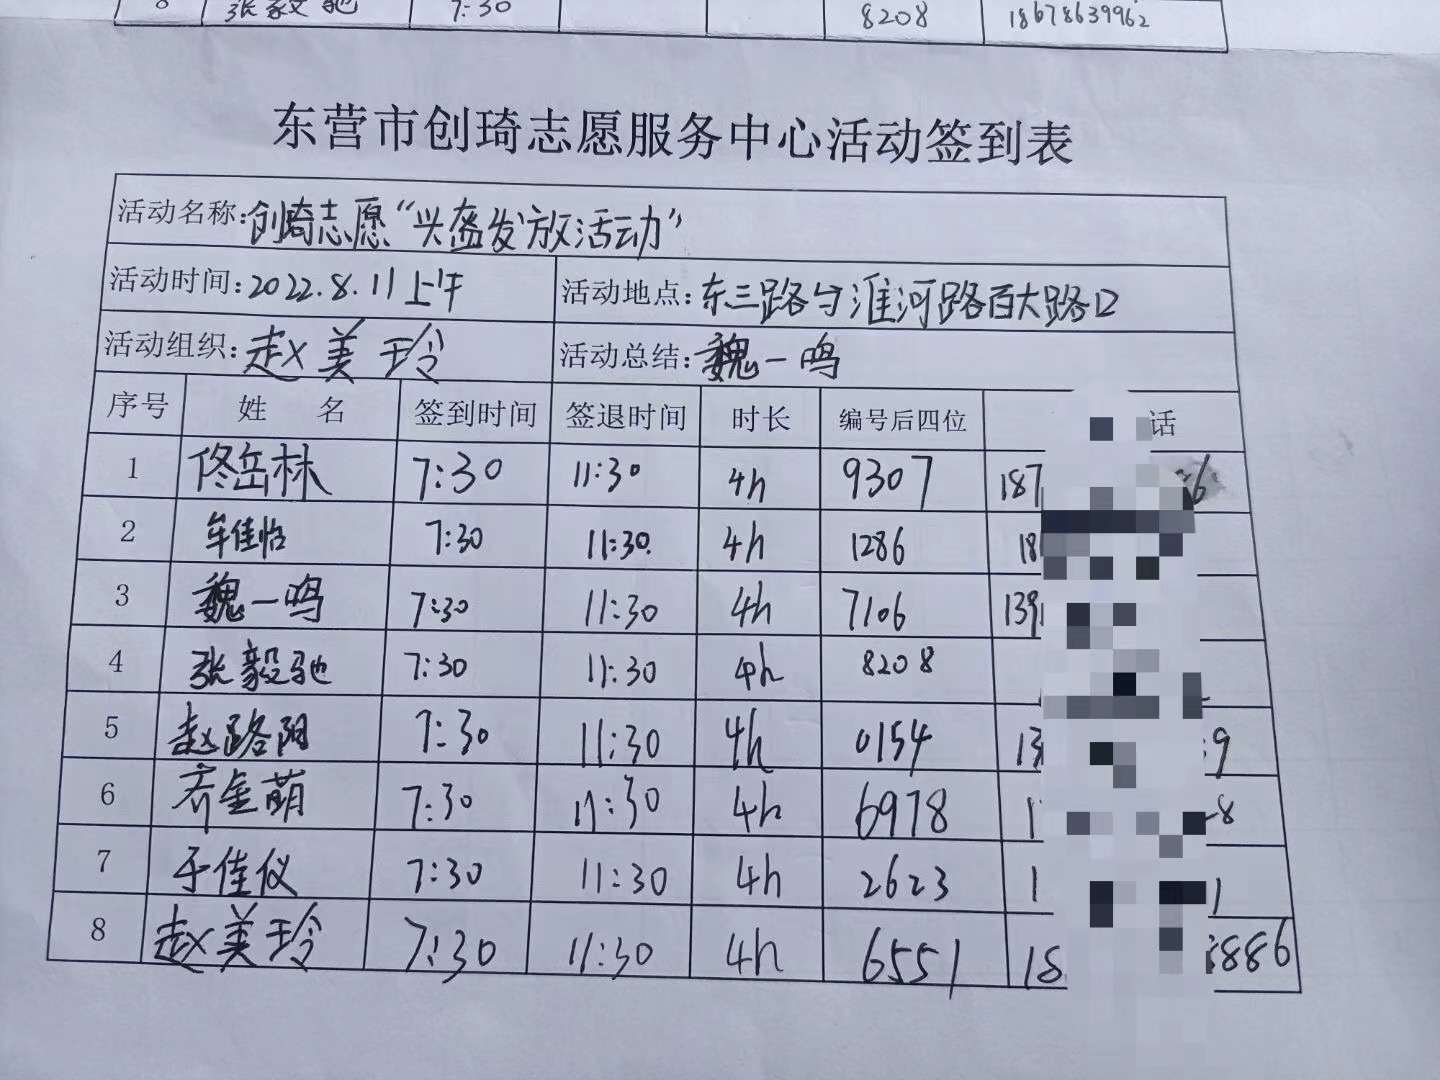 8 张毅驰 7:30 8208 18678639962
东营市创琦志愿服务中心活动签到表
活动名称:创琦志愿“兴盔发放活动”
活动时间:2022.8.11上午 活动地点:东三路与淮河路百大路口
活动组织:赵美玲 活动总结:魏一鸣
序号 姓 名 签到时间 签退时间 时长 编号后四位 话
1 佟岳林 7:30 11:30 4h 9307 187 6
2 牟佳怡 7:30 11:30 4h 1286 18
3 魏一鸣 7:30 11:30 4h 7106 139
4 张毅驰 7:30 11:30 4h 8208
5 赵路阳 7:30 11:30 4h 0154 13 9
6 齐金萌 7:30 11:30 4h 6978 1 8
7 于佳仪 7:30 11:30 4h 2623 1 1
8 赵美玲 7:30 11:30 4h 6551 18 886